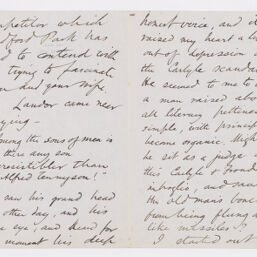 petitor which
dford Park has
d to contend with
trying to fascinate
and your wife.
Landor came near
ying —
mong the sons of men is
there any son
resistibler than
Alfred Tennyson!"
saw his grand head
other day, and his
eye, and heard for
moment his deep
honest voice, and it
raised my heart a lo
out of depression
the Carlyle scandal
He seemed to me to
a man raised abo
all literary
simple, with princip
become organic. Might
he set as a judge
this Carlyle &
imbroglio, and
the old man's bone
from being flung a
like missiles!
I started out